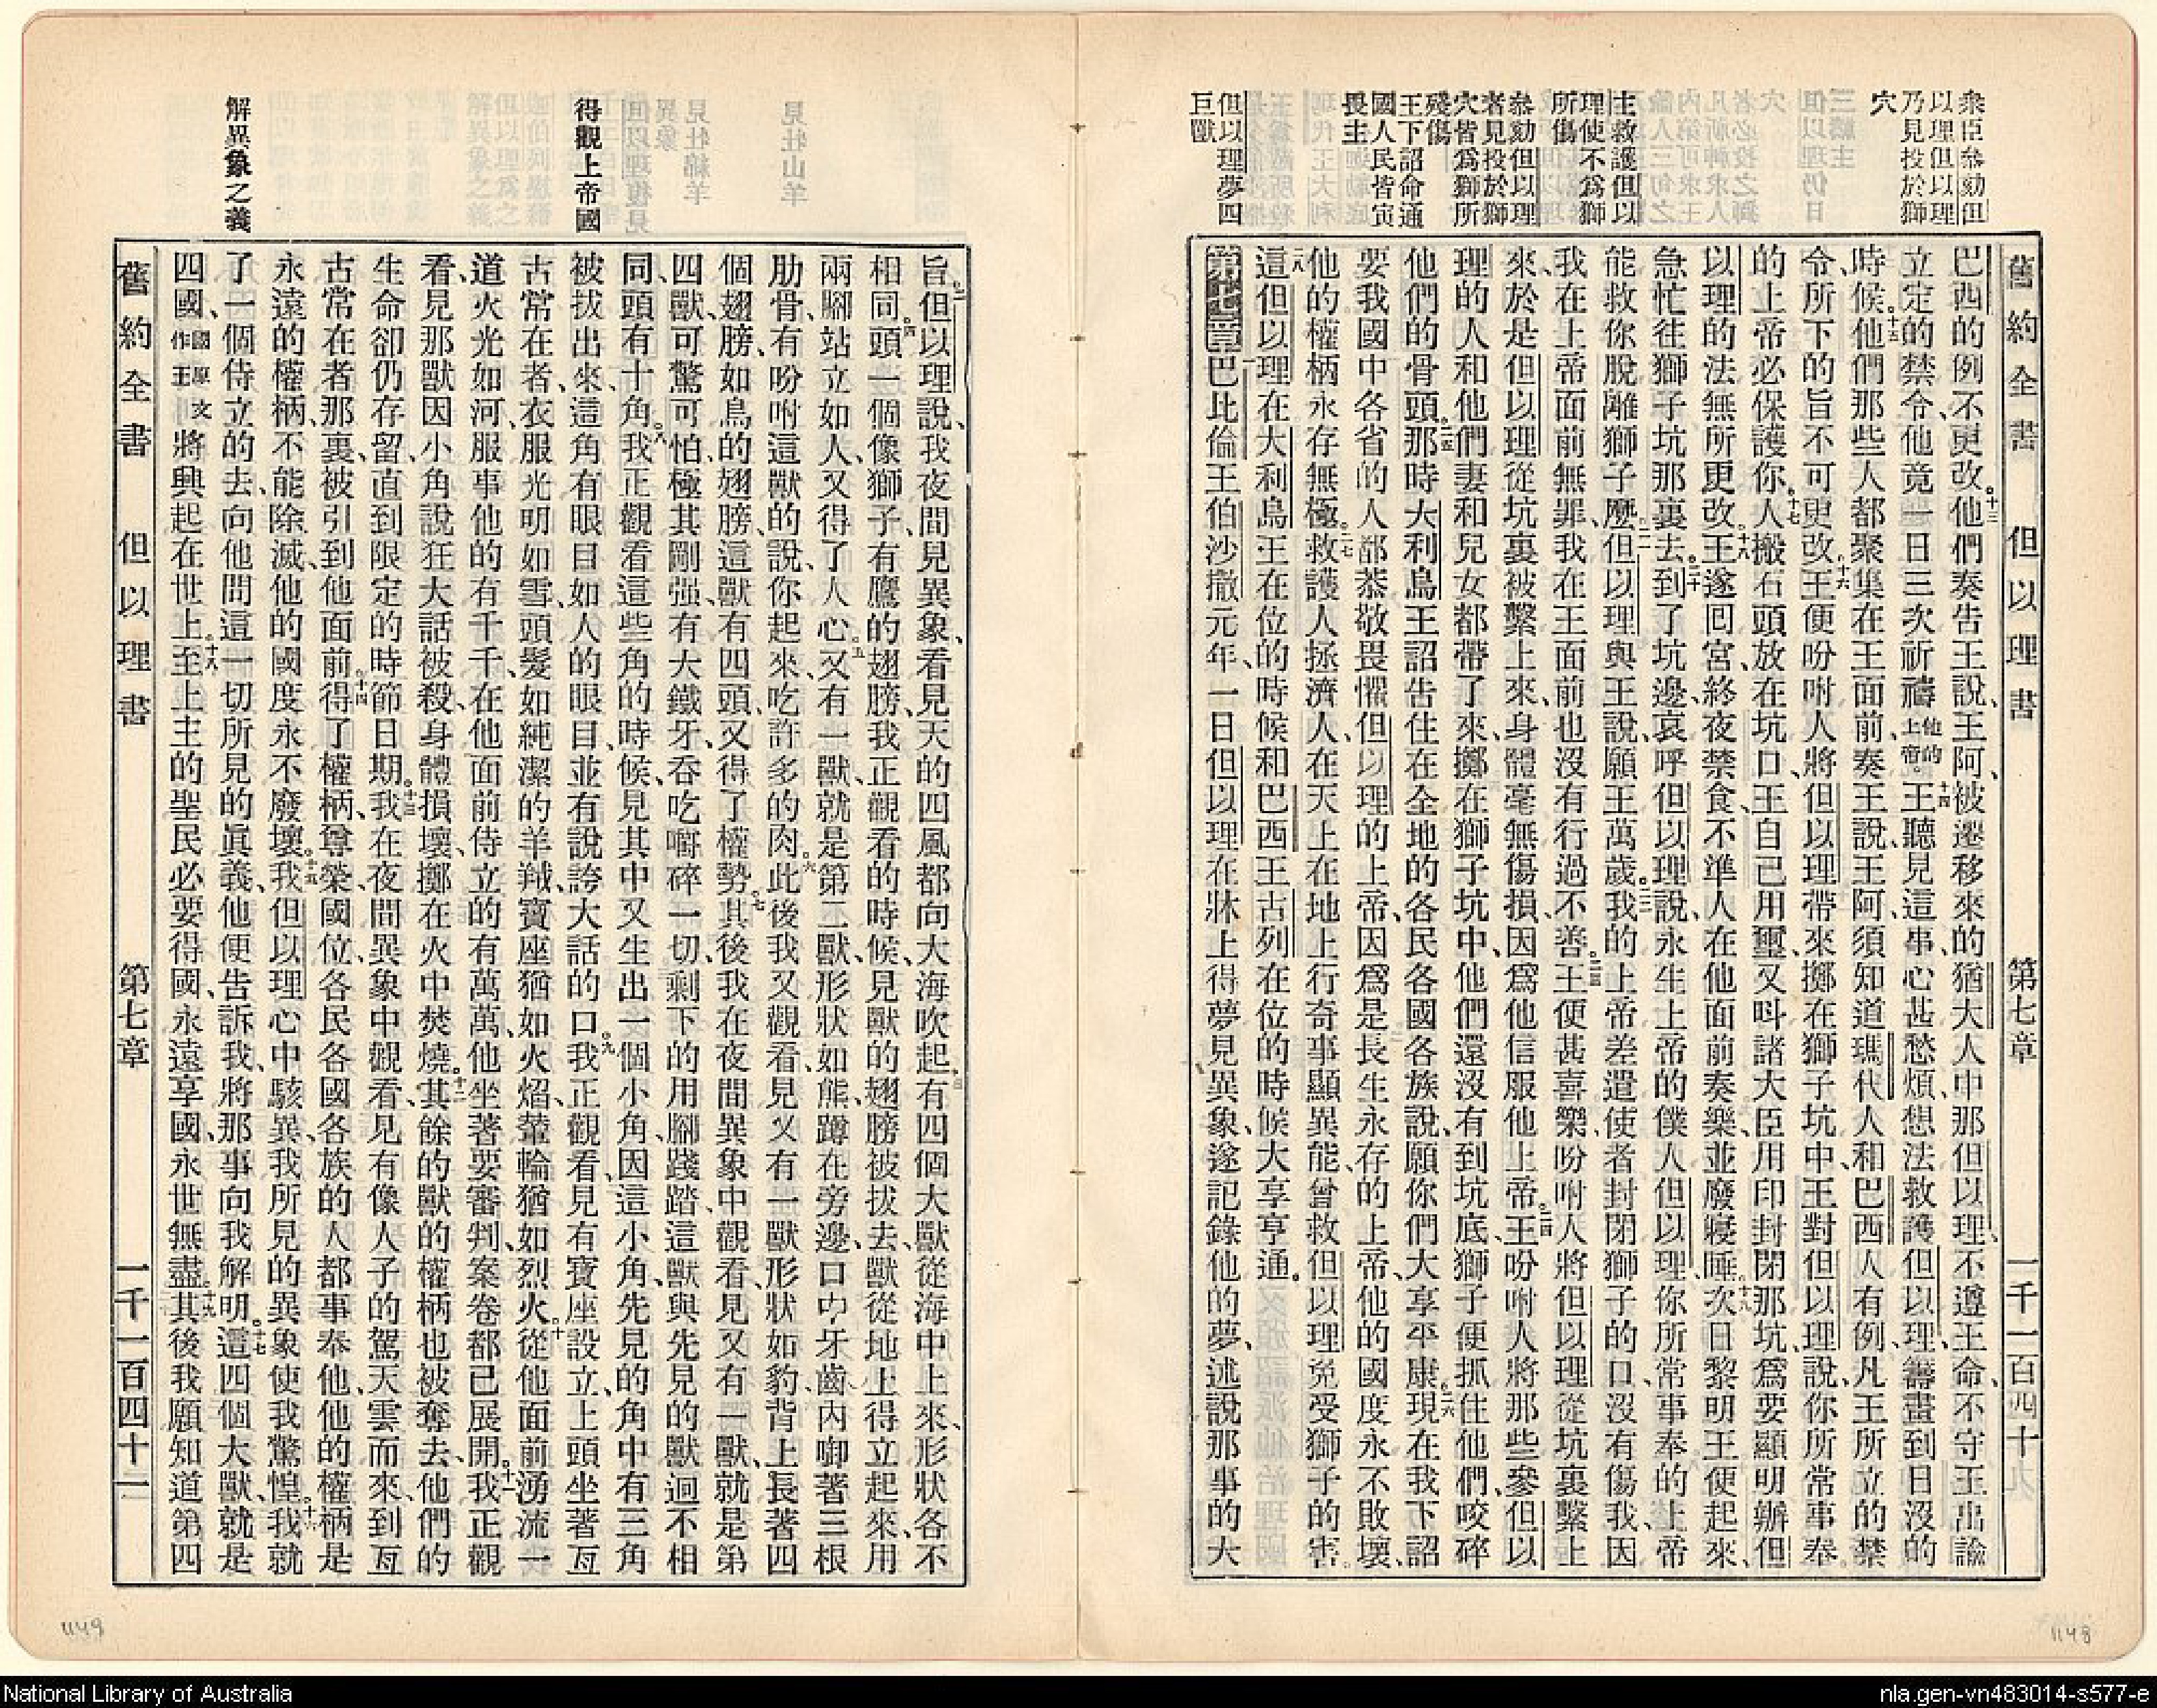 舊約全書 但以理書 第七章 一千一百四十九
衆臣叅劾但
以理但以理
乃見投於獅
穴
主救護但以
理使不爲獅
所傷
叅劾但以理
者見投於獅
穴皆爲獅所
殘傷
王下詔命通
國人民皆寅
畏主
但以理夢四
巨獸
巴西的例不更改。十三他們奏告王說、王阿、被遷移來的猶大人中那但以理、不遵王命、不守王出諭
立定的禁令、他竟一日三次祈禱他的上帝。十四王聽見這事、心甚愁煩、想法救護但以理、籌畫到日沒的
時候。十五他們那些人都聚集在王面前、奏王說、王阿、須知道瑪代人和巴西人有例、凡王所立的禁
令、所下的旨不可更改。十六王便吩咐人將但以理帶來、擲在獅子坑中、王對但以理說、你所常事奉
的上帝必保護你。十七人搬石頭放在坑口、王自己用璽、又呌諸大臣用印、封閉那坑、爲要顯明辦但
以理的法無所更改。十八王遂回宮、終夜禁食、不準人在他面前奏樂、並廢寢睡。十九次日黎明王便起來、
急忙往獅子坑那裏去。二十到了坑邊哀呼但以理說、永生上帝的僕人但以理、你所常事奉的上帝
能救你脫離獅子麽。二一但以理與王說、願王萬歲。二二我的上帝差遣使者、封閉獅子的口、沒有傷我、因
我在上帝面前無罪、我在王面前也沒有行過不善。二三王便甚喜樂、吩咐人將但以理從坑裏繫上
來、於是但以理從坑裏被繫上來、身體毫無傷損、因爲他信服他上帝。二四王吩咐人將那些參但以
理的人和他們妻和兒女都帶了來、擲在獅子坑中、他們還沒有到坑底、獅子便抓住他們、咬碎
他們的骨頭。二五那時大利烏王詔告住在全地的各民各國各族說、願你們大享平康。二六現在我下詔
要我國中各省的人都恭敬畏懼但以理的上帝、因爲是長生永存的上帝、他的國度永不敗壞、
他的權柄永存無極。二七救護人拯濟人、在天上在地上行奇事、顯異能、曾救但以理免受獅子的害。
二八這但以理在大利烏王在位的時候、和巴西王古列在位的時候、大享亨通。
第七章一巴比倫王伯沙撒元年、一日但以理在牀上得夢見異象、遂記錄他的夢、述說那事的大
得觀上帝國
解異象之義
旨。二但以理說、我夜間見異象、看見天的四風、都向大海吹起。三有四個大獸從海中上來、形狀各不
相同。四頭一個像獅子、有鷹的翅膀、我正觀看的時候、見獸的翅膀被拔去、獸從地上得立起來、用
兩腳站立如人、又得了人心。五又有一獸、就是第二獸、形狀如熊、蹲在旁邊、口中牙齒內啣著三根
肋骨、有吩咐這獸的說、你起來、吃許多的肉。六此後我又觀看、見又有一獸、形狀如豹、背上長著四
個翅膀、如鳥的翅膀、這獸有四頭、又得了權勢。七其後我在夜間異象中觀看、見又有一獸、就是第
四獸、可驚可怕、極其剛强、有大鐵牙、吞吃嚼碎一切、剩下的用腳踐踏、這獸與先見的獸迥不相
同、頭有十角。八我正觀看這些角的時候、見其中又生出一個小角、因這小角、先見的角中有三角
被拔出來、這角有眼目如人的眼目、並有說誇大話的口。九我正觀看、見有寶座設立、上頭坐著亙
古常在者、衣服光明如雪、頭髮如純潔的羊羢、寶座猶如火焰、輦輪猶如烈火。十從他面前湧流一
道火光如河、服事他的有千千、在他面前侍立的有萬萬、他坐著要審判、案卷都已展開。十一我正觀
看、見那獸因小角說狂大話被殺、身體損壞、擲在火中焚燒。十二其餘的獸的權柄也被奪去、他們的
生命卻仍存留、直到限定的時節日期。十三我在夜間異象中觀看、見有像人子的駕天雲而來、到亙
古常在者那裏、被引到他面前。十四得了權柄、尊榮、國位、各民各國各族的人都事奉他、他的權柄是
永遠的權柄、不能除滅、他的國度永不廢壞。十五我但以理心中駭異、我所見的異象使我驚惶。十六我就
了一個侍立的去、向他問這一切所見的眞義、他便告訴我、將那事向我解明。十七這四個大獸、就是
四國、國原文作王將興起在世上。十八至上主的聖民必要得國、永遠享國、永世無盡。十九其後我願知道第四
舊約全書 但以理書 第七章 一千一百四十一
1148
1149
National Library of Australia
nla.gen-vn483014-s577-e